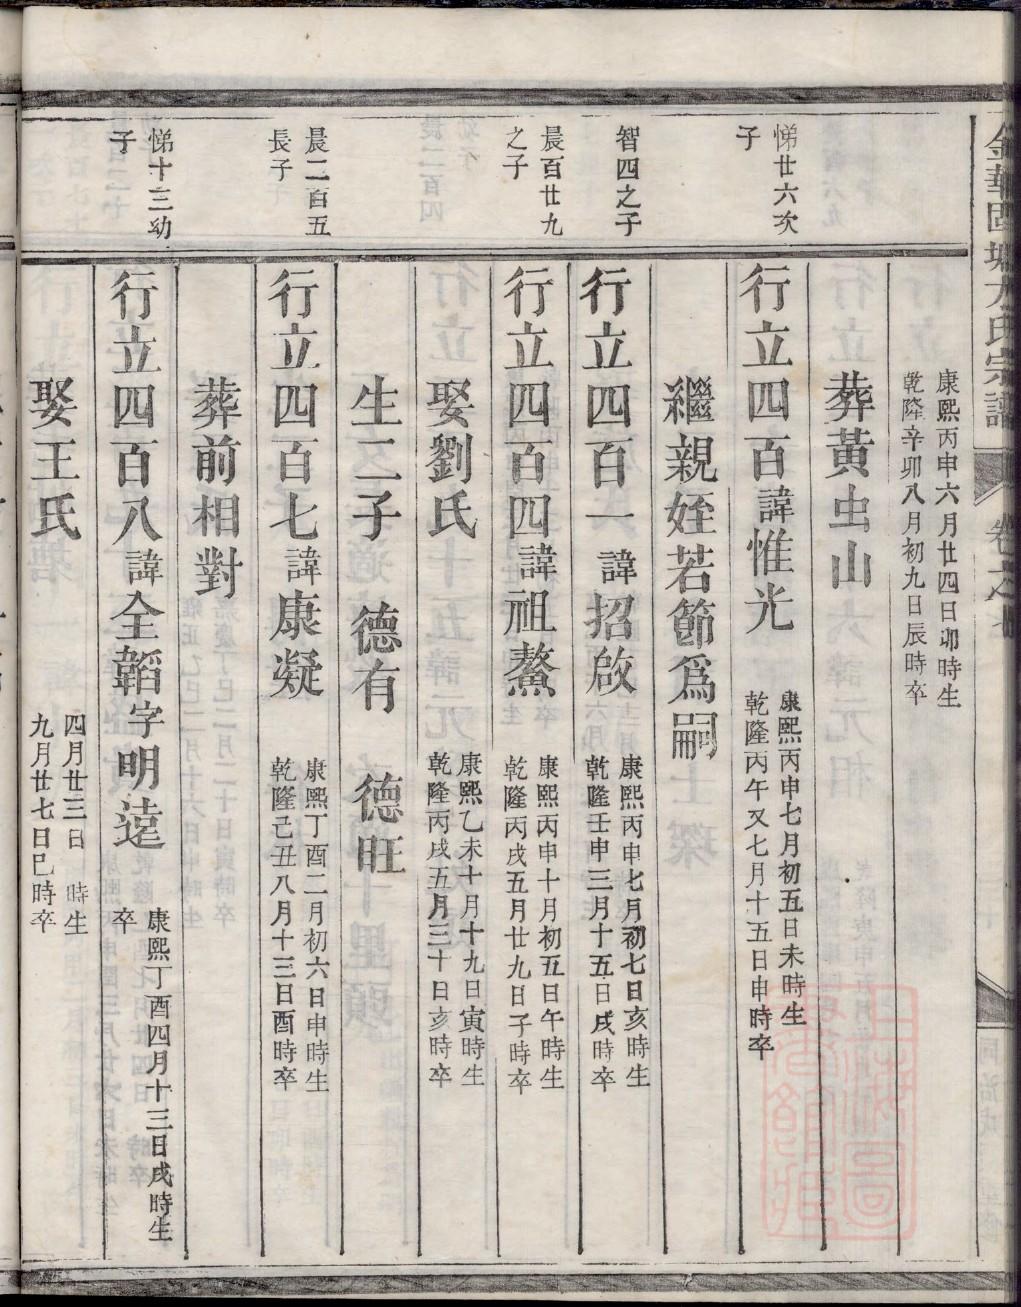 金華固塘方氏宗譜
卷之
康熙丙申六月廿四日卯時生
乾隆辛卯八月初九日辰時卒
葬黃虫山
悌廿六次子
行立四百諱惟光
康熙丙申七月初五日未時生
乾隆丙午又七月十五日申時卒
繼親姪若節爲嗣
智四之子
行立四百一諱招啟
康熙丙申七月初七日亥時生
乾隆壬申三月十五日戌時卒
晨百廿九之子
行立四百四諱祖鰲
康熙丙申十月初五日午時生
乾隆丙戌五月廿九日子時卒
娶劉氏
康熙乙未十月十九日寅時生
乾隆丙戌五月三十日亥時卒
生二子 德有 德旺
晨二百五長子
行立四百七諱康凝
康熙丁酉二月初六日申時生
乾隆己丑八月十三日酉時卒
葬前相對
悌十三幼子
行立四百八諱全韜字明遠
康熙丁酉四月十三日戌時生
卒
娶王氏
四月廿三日 時生
九月廿七日巳時卒